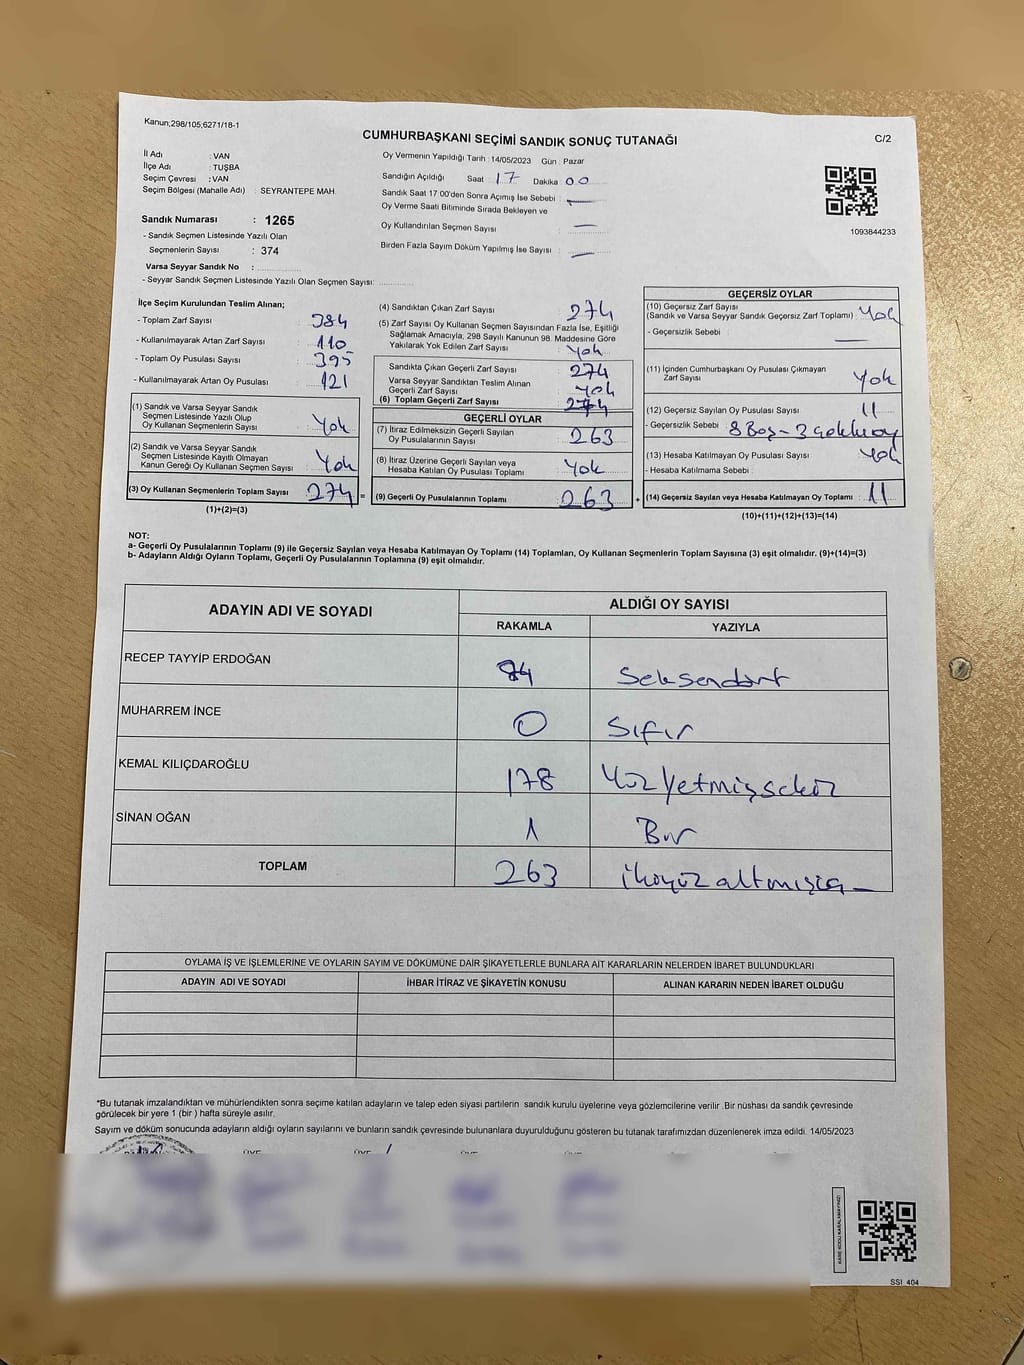 Kanun;298/105;6271/18-1
CUMHURBAŞKANI SEÇİMİ SANDIK SONUÇ TUTANAĞI
C/2
İl Adı : VAN
İlçe Adı : TUŞBA
Seçim Çevresi : VAN
Seçim Bölgesi (Mahalle Adı) : SEYRANTEPE MAH.
Sandık Numarası : 1265
- Sandık Seçmen Listesinde Yazılı Olan
Seçmenlerin Sayısı : 374
Varsa Seyyar Sandık No :
- Seyyar Sandık Seçmen Listesinde Yazılı Olan Seçmen Sayısı:
Oy Vermenin Yapıldığı Tarih : 14/05/2023 Gün : Pazar
Sandığın Açıldığı Saat 17 Dakika 00
Sandık Saat 17:00'den Sonra Açımış İse Sebebi : —
Oy Verme Saati Bitiminde Sırada Bekleyen ve
Oy Kullandırılan Seçmen Sayısı : —
Birden Fazla Sayım Döküm Yapılmış İse Sayısı : —
1093844233
İlçe Seçim Kurulundan Teslim Alınan;
- Toplam Zarf Sayısı : 384
- Kullanılmayarak Artan Zarf Sayısı : 110
- Toplam Oy Pusulası Sayısı : 395
- Kullanılmayarak Artan Oy Pusulası : 121
(1) Sandık ve Varsa Seyyar Sandık
Seçmen Listesinde Yazılı Olup
Oy Kullanan Seçmenlerin Sayısı : Yok
(2) Sandık ve Varsa Seyyar Sandık
Seçmen Listesinde Kayıtlı Olmayan
Kanun Gereği Oy Kullanan Seçmen Sayısı : Yok
(3) Oy Kullanan Seçmenlerin Toplam Sayısı : 274 =
(1)+(2)=(3)
(4) Sandıktan Çıkan Zarf Sayısı : 274
(5) Zarf Sayısı Oy Kullanan Seçmen Sayısından Fazla İse, Eşitliği
Sağlamak Amacıyla, 298 Sayılı Kanunun 98. Maddesine Göre
Yakılarak Yok Edilen Zarf Sayısı : Yok
Sandıkta Çıkan Geçerli Zarf Sayısı : 274
Varsa Seyyar Sandıktan Teslim Alınan
Geçerli Zarf Sayısı : Yok
(6) Toplam Geçerli Zarf Sayısı : 274
GEÇERLİ OYLAR
(7) İtiraz Edilmeksizin Geçerli Sayılan
Oy Pusulalarının Sayısı : 263
(8) İtiraz Üzerine Geçerli Sayılan veya
Hesaba Katılan Oy Pusulası Toplamı : Yok
(9) Geçerli Oy Pusulalarının Toplamı : 263 +
GEÇERSİZ OYLAR
(10) Geçersiz Zarf Sayısı
(Sandık ve Varsa Seyyar Sandık Geçersiz Zarf Toplamı) : Yok
- Geçersizlik Sebebi : —
(11) İçinden Cumhurbaşkanı Oy Pusulası Çıkmayan
Zarf Sayısı : Yok
(12) Geçersiz Sayılan Oy Pusulası Sayısı : 11
- Geçersizlik Sebebi : 8 Boş - 3
(13) Hesaba Katılmayan Oy Pusulası Sayısı : Yok
- Hesaba Katılmama Sebebi :
(14) Geçersiz Sayılan veya Hesaba Katılmayan Oy Toplamı : 11
(10)+(11)+(12)+(13)=(14)
NOT:
a- Geçerli Oy Pusulalarının Toplamı (9) ile Geçersiz Sayılan veya Hesaba Katılmayan Oy Toplamı (14) Toplamları, Oy Kullanan Seçmenlerin Toplam Sayısına (3) eşit olmalıdır. (9)+(14)=(3)
b- Adayların Aldığı Oyların Toplamı, Geçerli Oy Pusulalarının Toplamına (9) eşit olmalıdır.
ADAYIN ADI VE SOYADI ALDIĞI OY SAYISI
RAKAMLA YAZIYLA
RECEP TAYYİP ERDOĞAN 84 Seksendört
MUHARREM İNCE 0 Sıfır
KEMAL KILIÇDAROĞLU 178 Yüz Yetmişsekiz
SİNAN OĞAN 1 Bir
TOPLAM 263 ikiyüzaltmışüç
OYLAMA İŞ VE İŞLEMLERİNE VE OYLARIN SAYIM VE DÖKÜMÜNE DAİR ŞİKAYETLERLE BUNLARA AİT KARARLARIN NELERDEN İBARET BULUNDUKLARI
ADAYIN ADI VE SOYADI İHBAR İTİRAZ VE ŞİKAYETİN KONUSU ALINAN KARARIN NEDEN İBARET OLDUĞU
*Bu tutanak imzalandıktan ve mühürlendikten sonra seçime katılan adayların ve talep eden siyasi partilerin sandık kurulu üyelerine veya gözlemcilerine verilir .Bir nüshası da sandık çevresinde
görülecek bir yere 1 (bir ) hafta süreyle asılır.
Sayım ve döküm sonucunda adayların aldığı oyların sayılarını ve bunların sandık çevresinde bulunanlara duyurulduğunu gösteren bu tutanak tarafımızdan düzenlenerek imza edildi. 14/05/2023
KARE KODU KARALAMAYINIZ!
SSI_404